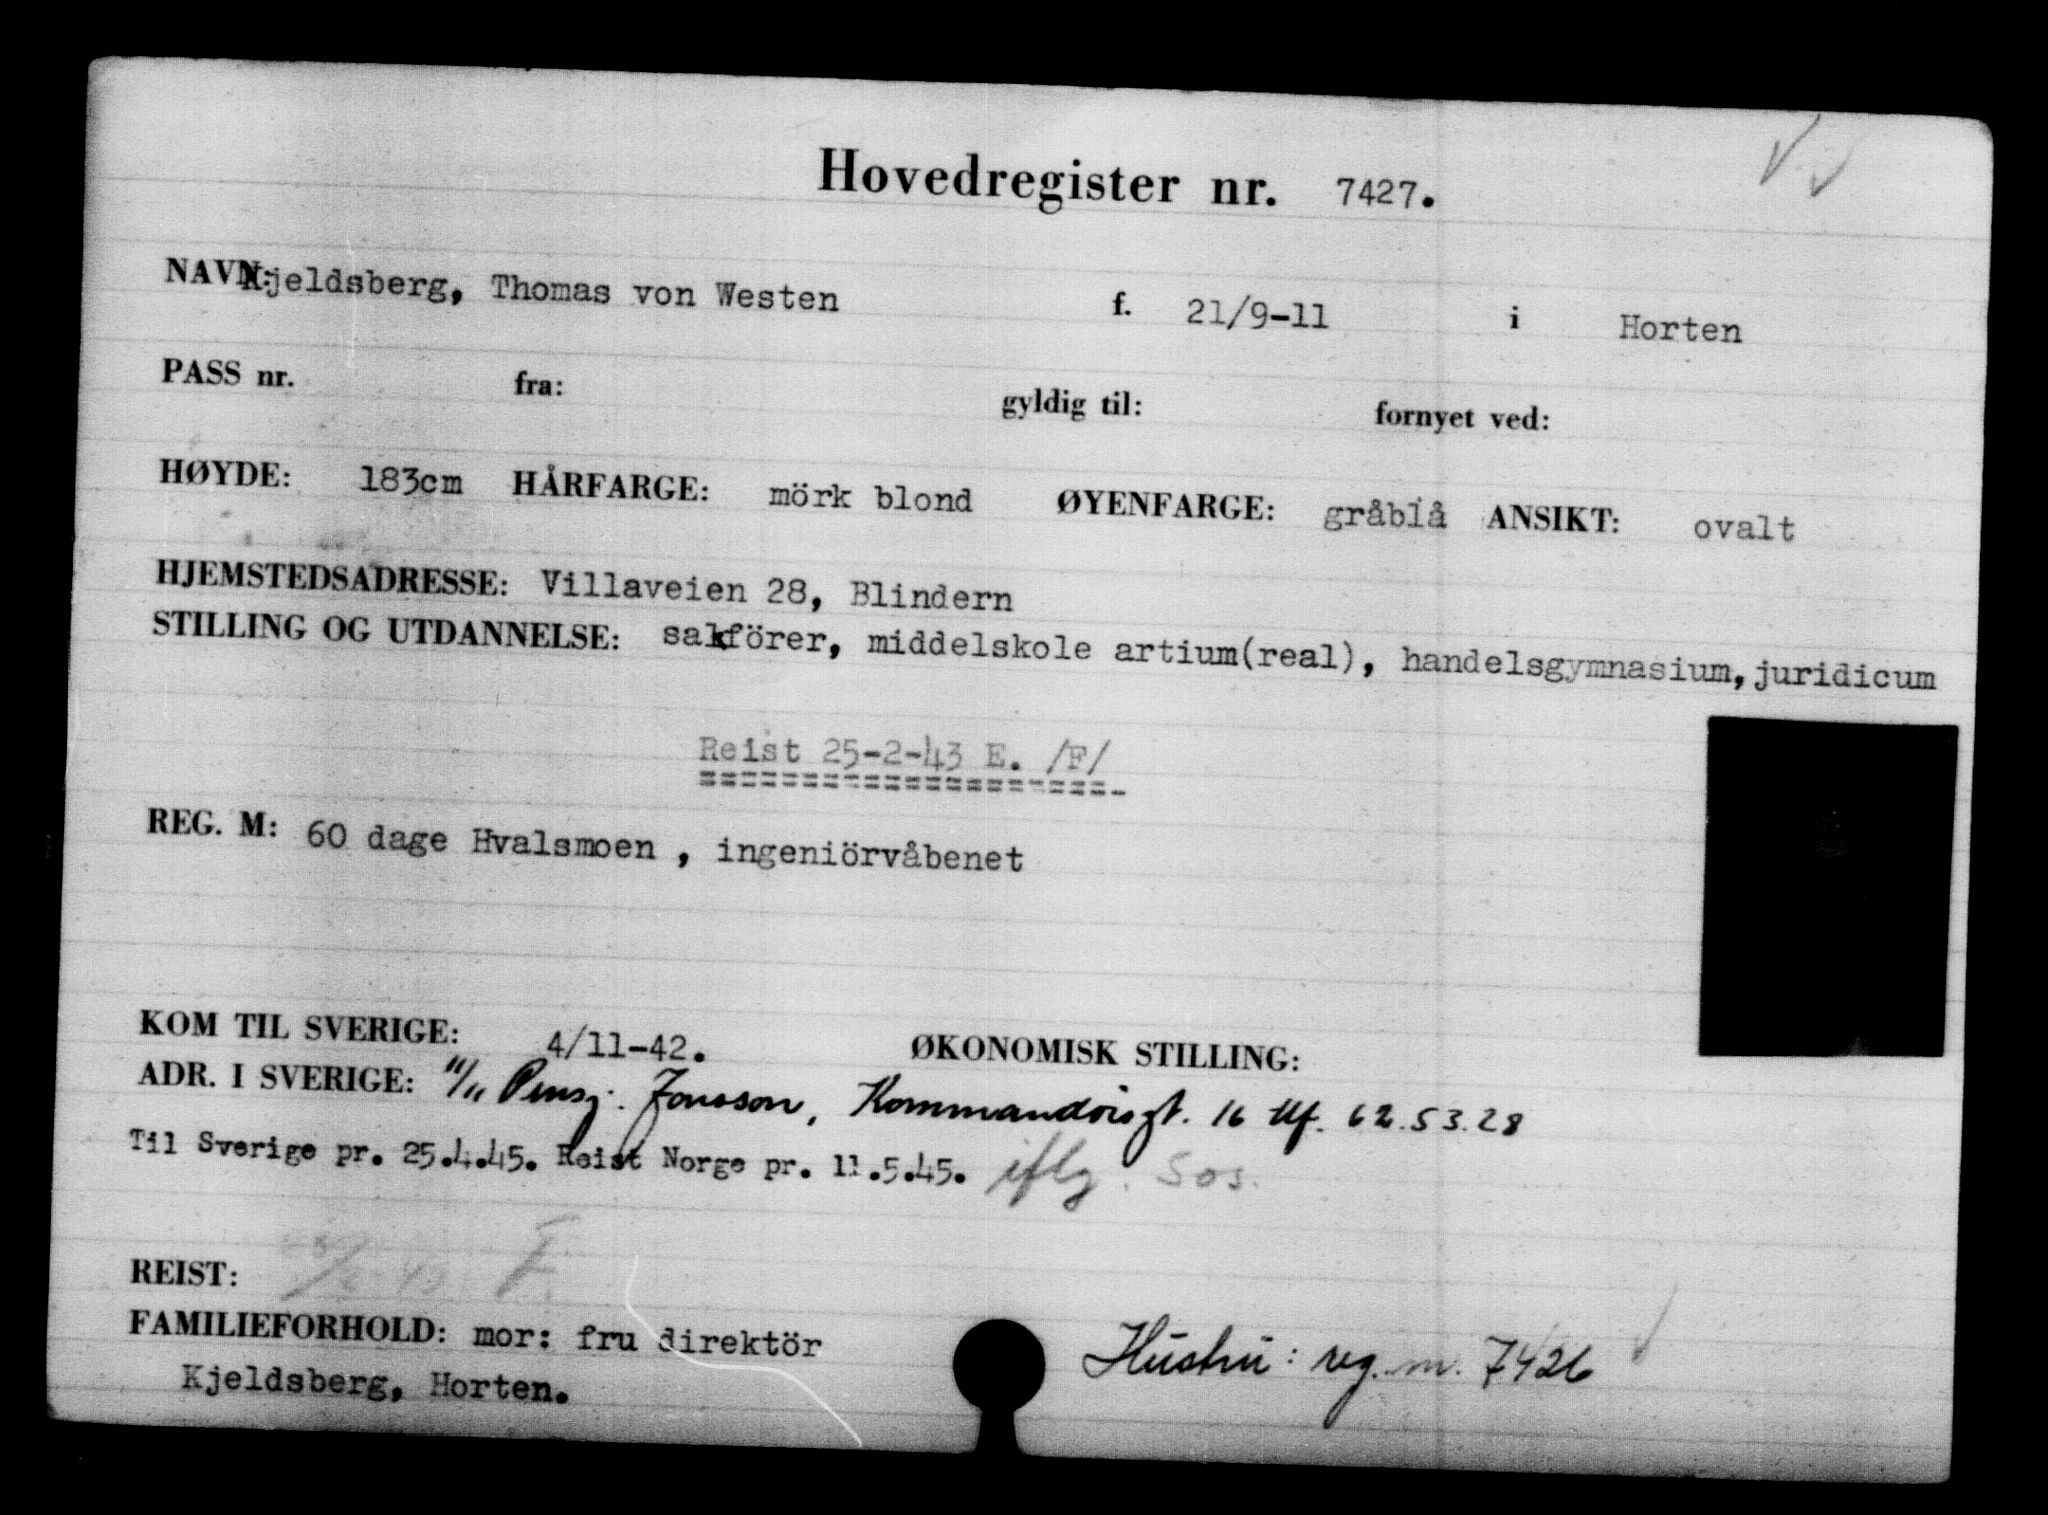 Hovedregister nr. 7427.
NAVN: Kjeldsberg, Thomas von Westen f. 21/9-11 i Horten
PASS nr. fra: gyldig til: fornyet ved:
HØYDE: 183cm HÅRFARGE: mörk blond ØYENFARGE: gråblå ANSIKT: ovalt
HJEMSTEDSADRESSE: Villaveien 28, Blindern
STILLING OG UTDANNELSE: sakförer, middelskole artium(real), handelsgymnasium, juridicum
Reist 25-2-43 E. /F/
REG. M: 60 dage Hvalsmoen , ingeniörvåbenet
KOM TIL SVERIGE: 4/11-42. ØKONOMISK STILLING:
ADR. I SVERIGE: 11/11 Pensj. Jonsson, Kommandörsgt. 16 tlf. 62.53.28
Til Sverige pr. 25.4.45. Reist Norge pr. 11.5.45. iflg. Sos.
REIST: F
FAMILIEFORHOLD: mor: fru direktör
Kjeldsberg, Horten.
Hustru: reg. nr. 7426